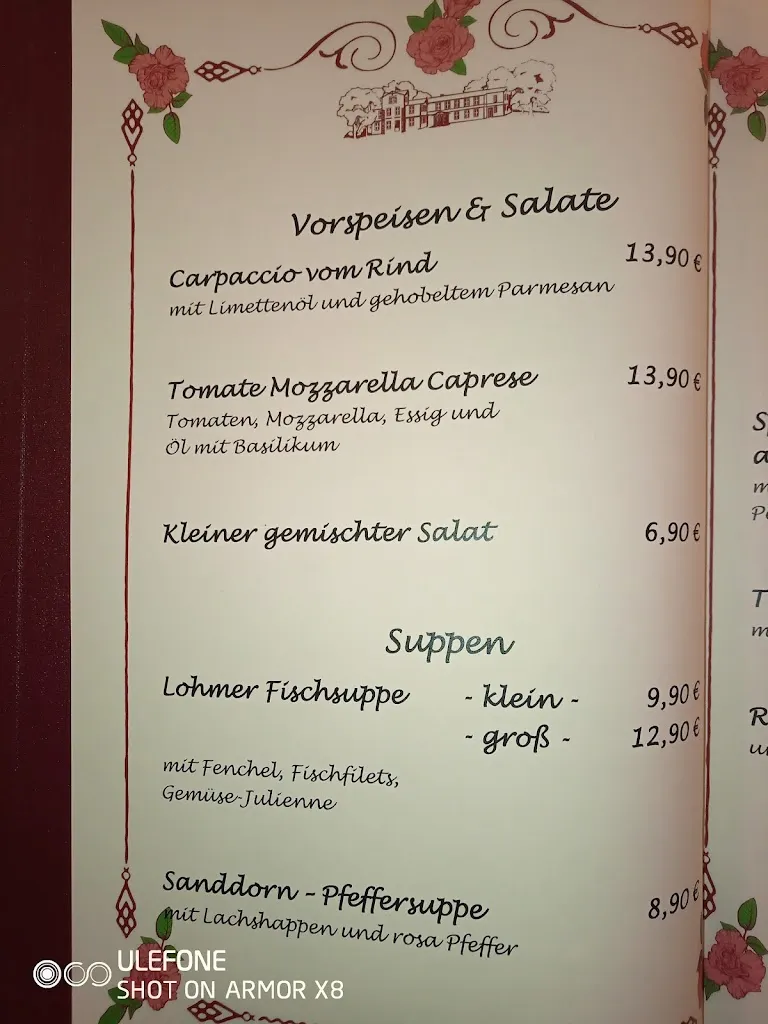 Vorspeisen & Salate
Carpaccio vom Rind 13,90 €
mit Limettenöl und gehobeltem Parmesan
Tomate Mozzarella Caprese 13,90 €
Tomaten, Mozzarella, Essig und
Öl mit Basilikum
Kleiner gemischter Salat 6,90 €
Suppen
Lohmer Fischsuppe - klein - 9,90 €
- groß - 12,90 €
mit Fenchel, Fischfilets,
Gemüse-Julienne
Sanddorn - Pfeffersuppe 8,90 €
mit Lachshappen und rosa Pfeffer
ULEFONE
SHOT ON ARMOR X8